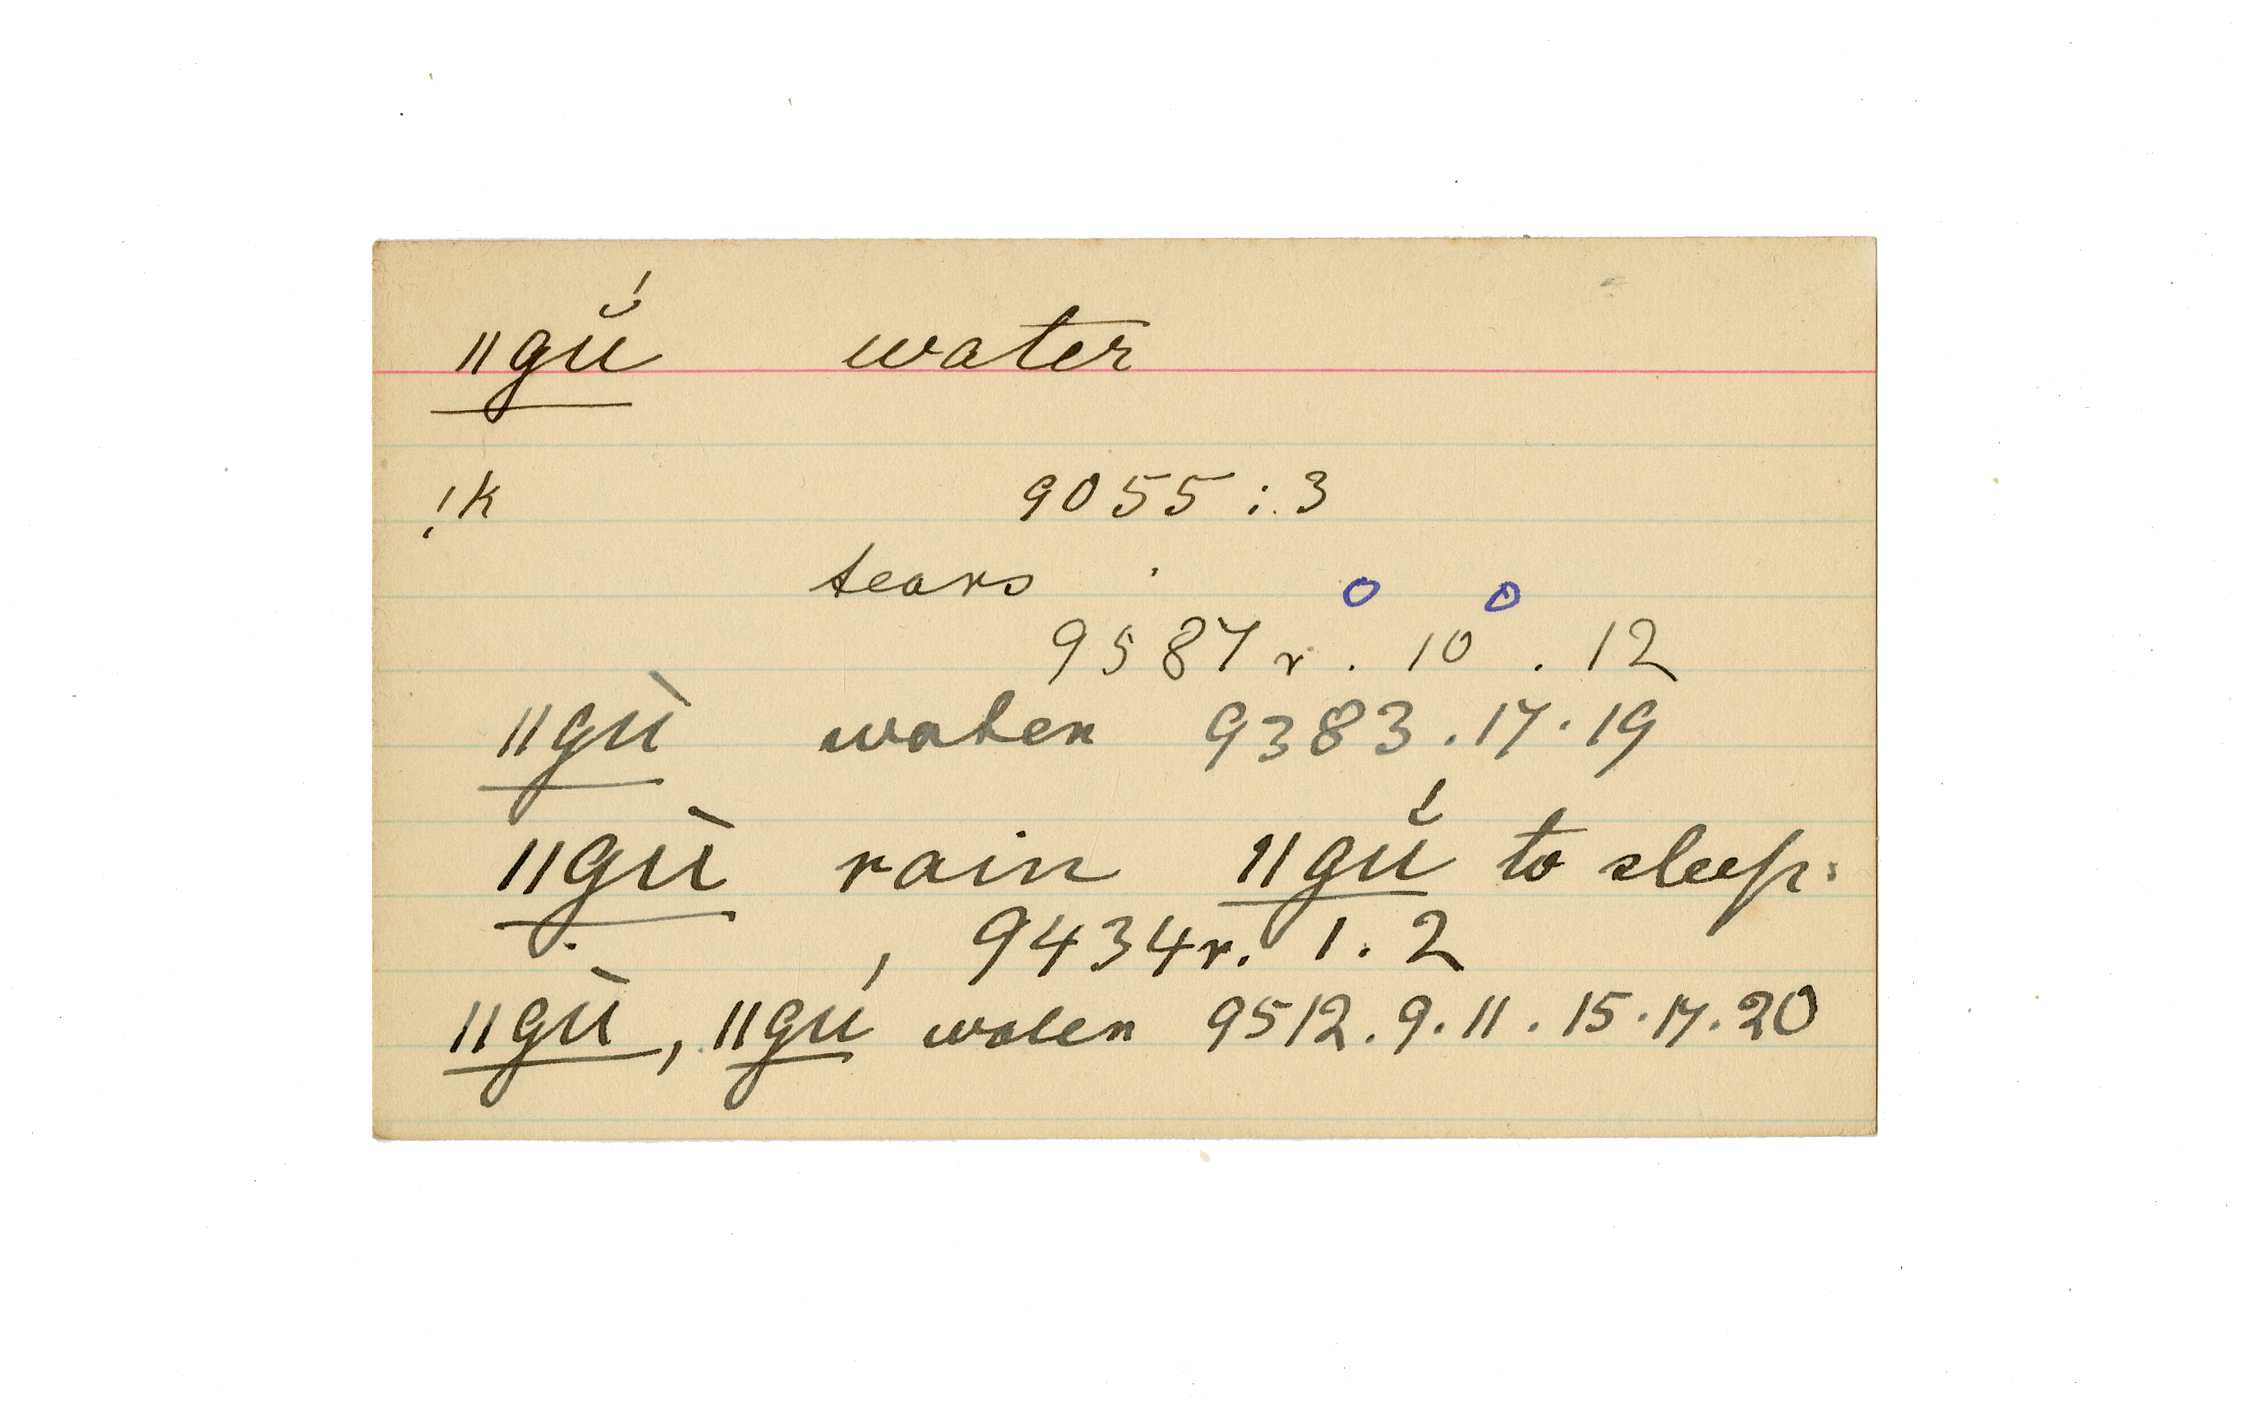 ǁgŭ́ water
!k 9055 : 3
tears
9587 r . 10 . 12
ǁgù water 9383 . 17 . 19
ǁgù rain ǁgŭ́ to sleep:
9434 r. 1. 2
ǁgù, ǁgú water 9512. 9. 11. 15. 17. 20